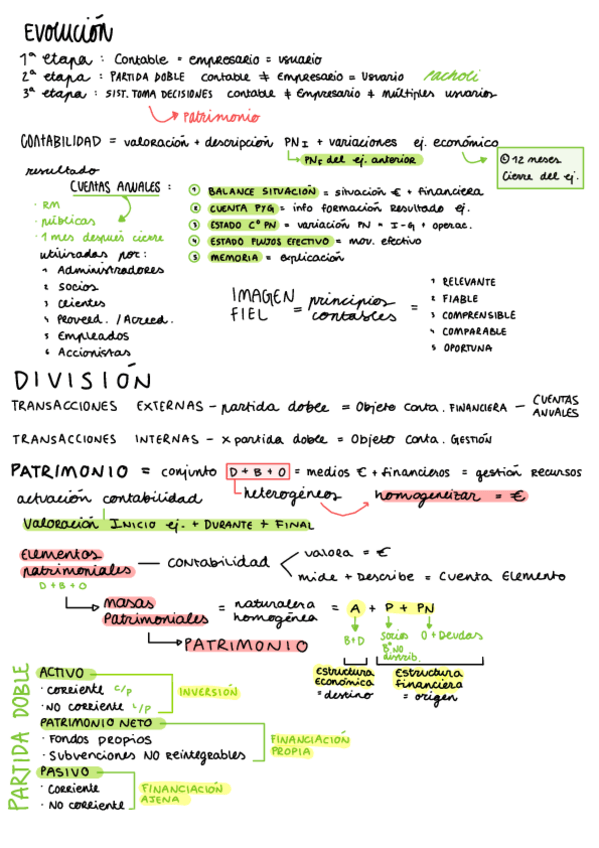 EVOLUCIÓN
1ª etapa : Contable = empresario = usuario
2ª etapa : PARTIDA DOBLE contable ≠ Empresario = Usuario Pacholi
3ª etapa : SIST. TOMA DECISIONES contable ≠ Empresario ≠ múltiples usuarios
Patrimonio
CONTABILIDAD = valoración + descripción PNI + variaciones ej. económico
PNF del ej. anterior
12 meses
Cierre del ej.
resultado
CUENTAS ANUALES :
· RM
· públicas
· 1 mes después cierre
1 BALANCE SITUACIÓN = situación € + financiera
2 CUENTA PYG = info formación resultado ej.
3 ESTADO Cº PN = variación PN = I - G + operac.
4 ESTADO FLUJOS EFECTIVO = mov. efectivo
5 MEMORIA = explicación
utilizadas por:
1 Administradores
2 Socios
3 Clientes
4 Proveed. / Acreed.
5 Empleados
6 Accionistas
IMAGEN FIEL = principios contables =
1 RELEVANTE
2 FIABLE
3 COMPRENSIBLE
4 COMPARABLE
5 OPORTUNA
DIVISIÓN
TRANSACCIONES EXTERNAS - partida doble = Objeto conta. FINANCIERA - CUENTAS ANUALES
TRANSACCIONES INTERNAS - x partida doble = Objeto conta. GESTIÓN
PATRIMONIO = conjunto D + B + O = medios € + financieros = gestión recursos
actuación contabilidad
heterogéneos
homogeneizar = €
Valoración INICIO ej. + DURANTE + FINAL
Elementos patrimoniales
D + B + O
contabilidad
valora = €
mide + Describe = Cuenta Elemento
masas Patrimoniales = naturaleza homogénea = A + P + PN
PATRIMONIO
B + D
socios
Bº NO distrib.
O + Deudas
Estructura Económica = destino
Estructura financiera = origen
PARTIDA DOBLE
ACTIVO
· corriente C/P
· NO corriente L/P
INVERSIÓN
PATRIMONIO NETO
· Fondos propios
· Subvenciones NO reintegrables
FINANCIACIÓN PROPIA
PASIVO
· Corriente
· NO corriente
FINANCIACIÓN AJENA